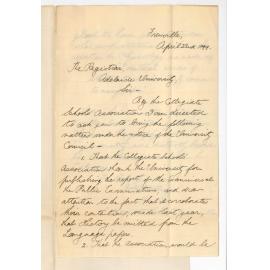 Trenville,
April 22nd 1899.
The Registrar
Adelaide University,
Sir—
By the Collegiate
Schools Association I am directed
to ask you to bring the following
matters under the notice of the University
Council—
1. That the Collegiate Schools
Association thank the University for
publishing the report of the Examiners of
the Public Examinations, and draw
attention to the fact that it corroborates
those contentions, made last year,
that History be omitted from the
Language papers.
2. That the association would be